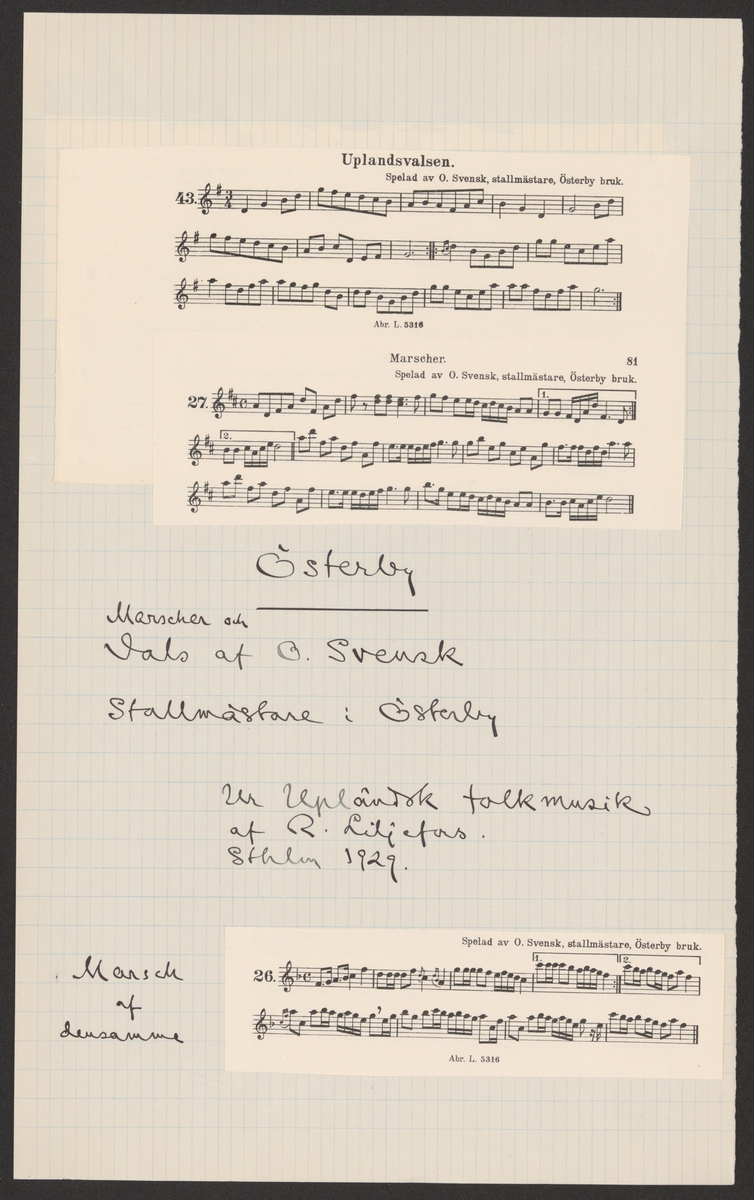 Uplandsvalsen.
Spelad av O. Svensk, stallmästare, Österby bruk.
43.
Abr. L. 5316
Marscher. 81
Spelad av O. Svensk, stallmästare, Österby bruk.
27.
1.
2.
Österby
Marscher och
Vals af O. Svensk
Stallmästare i Österby
Ur Upländsk folkmusik
af R. Liljefors.
Sthlm 1929.
Spelad av O. Svensk, stallmästare, Österby bruk.
Marsch
af
densamme
26.
1.
2.
Abr. L. 5316